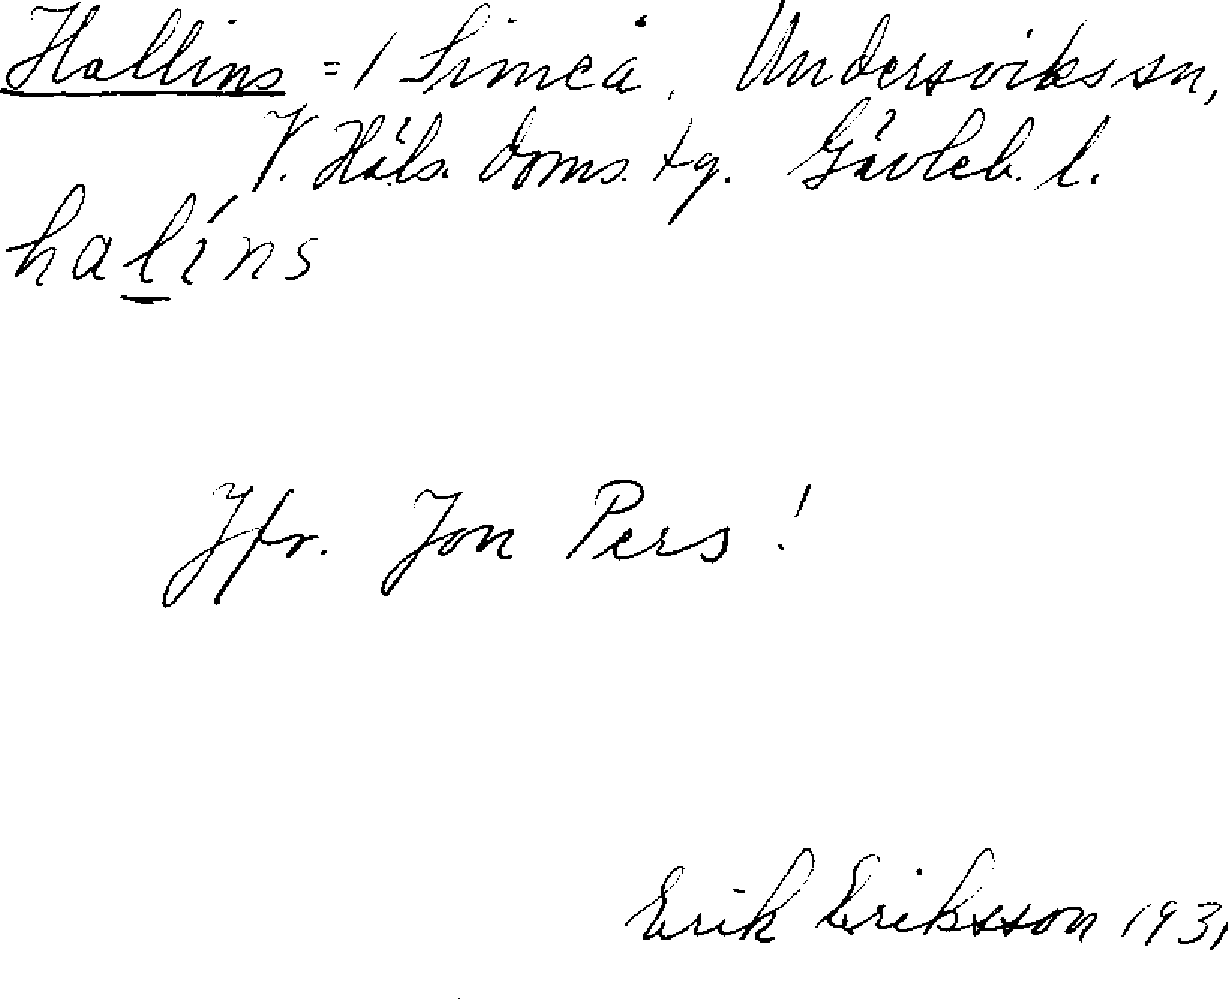 Hallins = 1 Simeå, Undersvikssn,
V. Häls. doms. tg. Gävleb. l.
halíns
Jfr. Jon Pers!
Erik Eriksson 1931